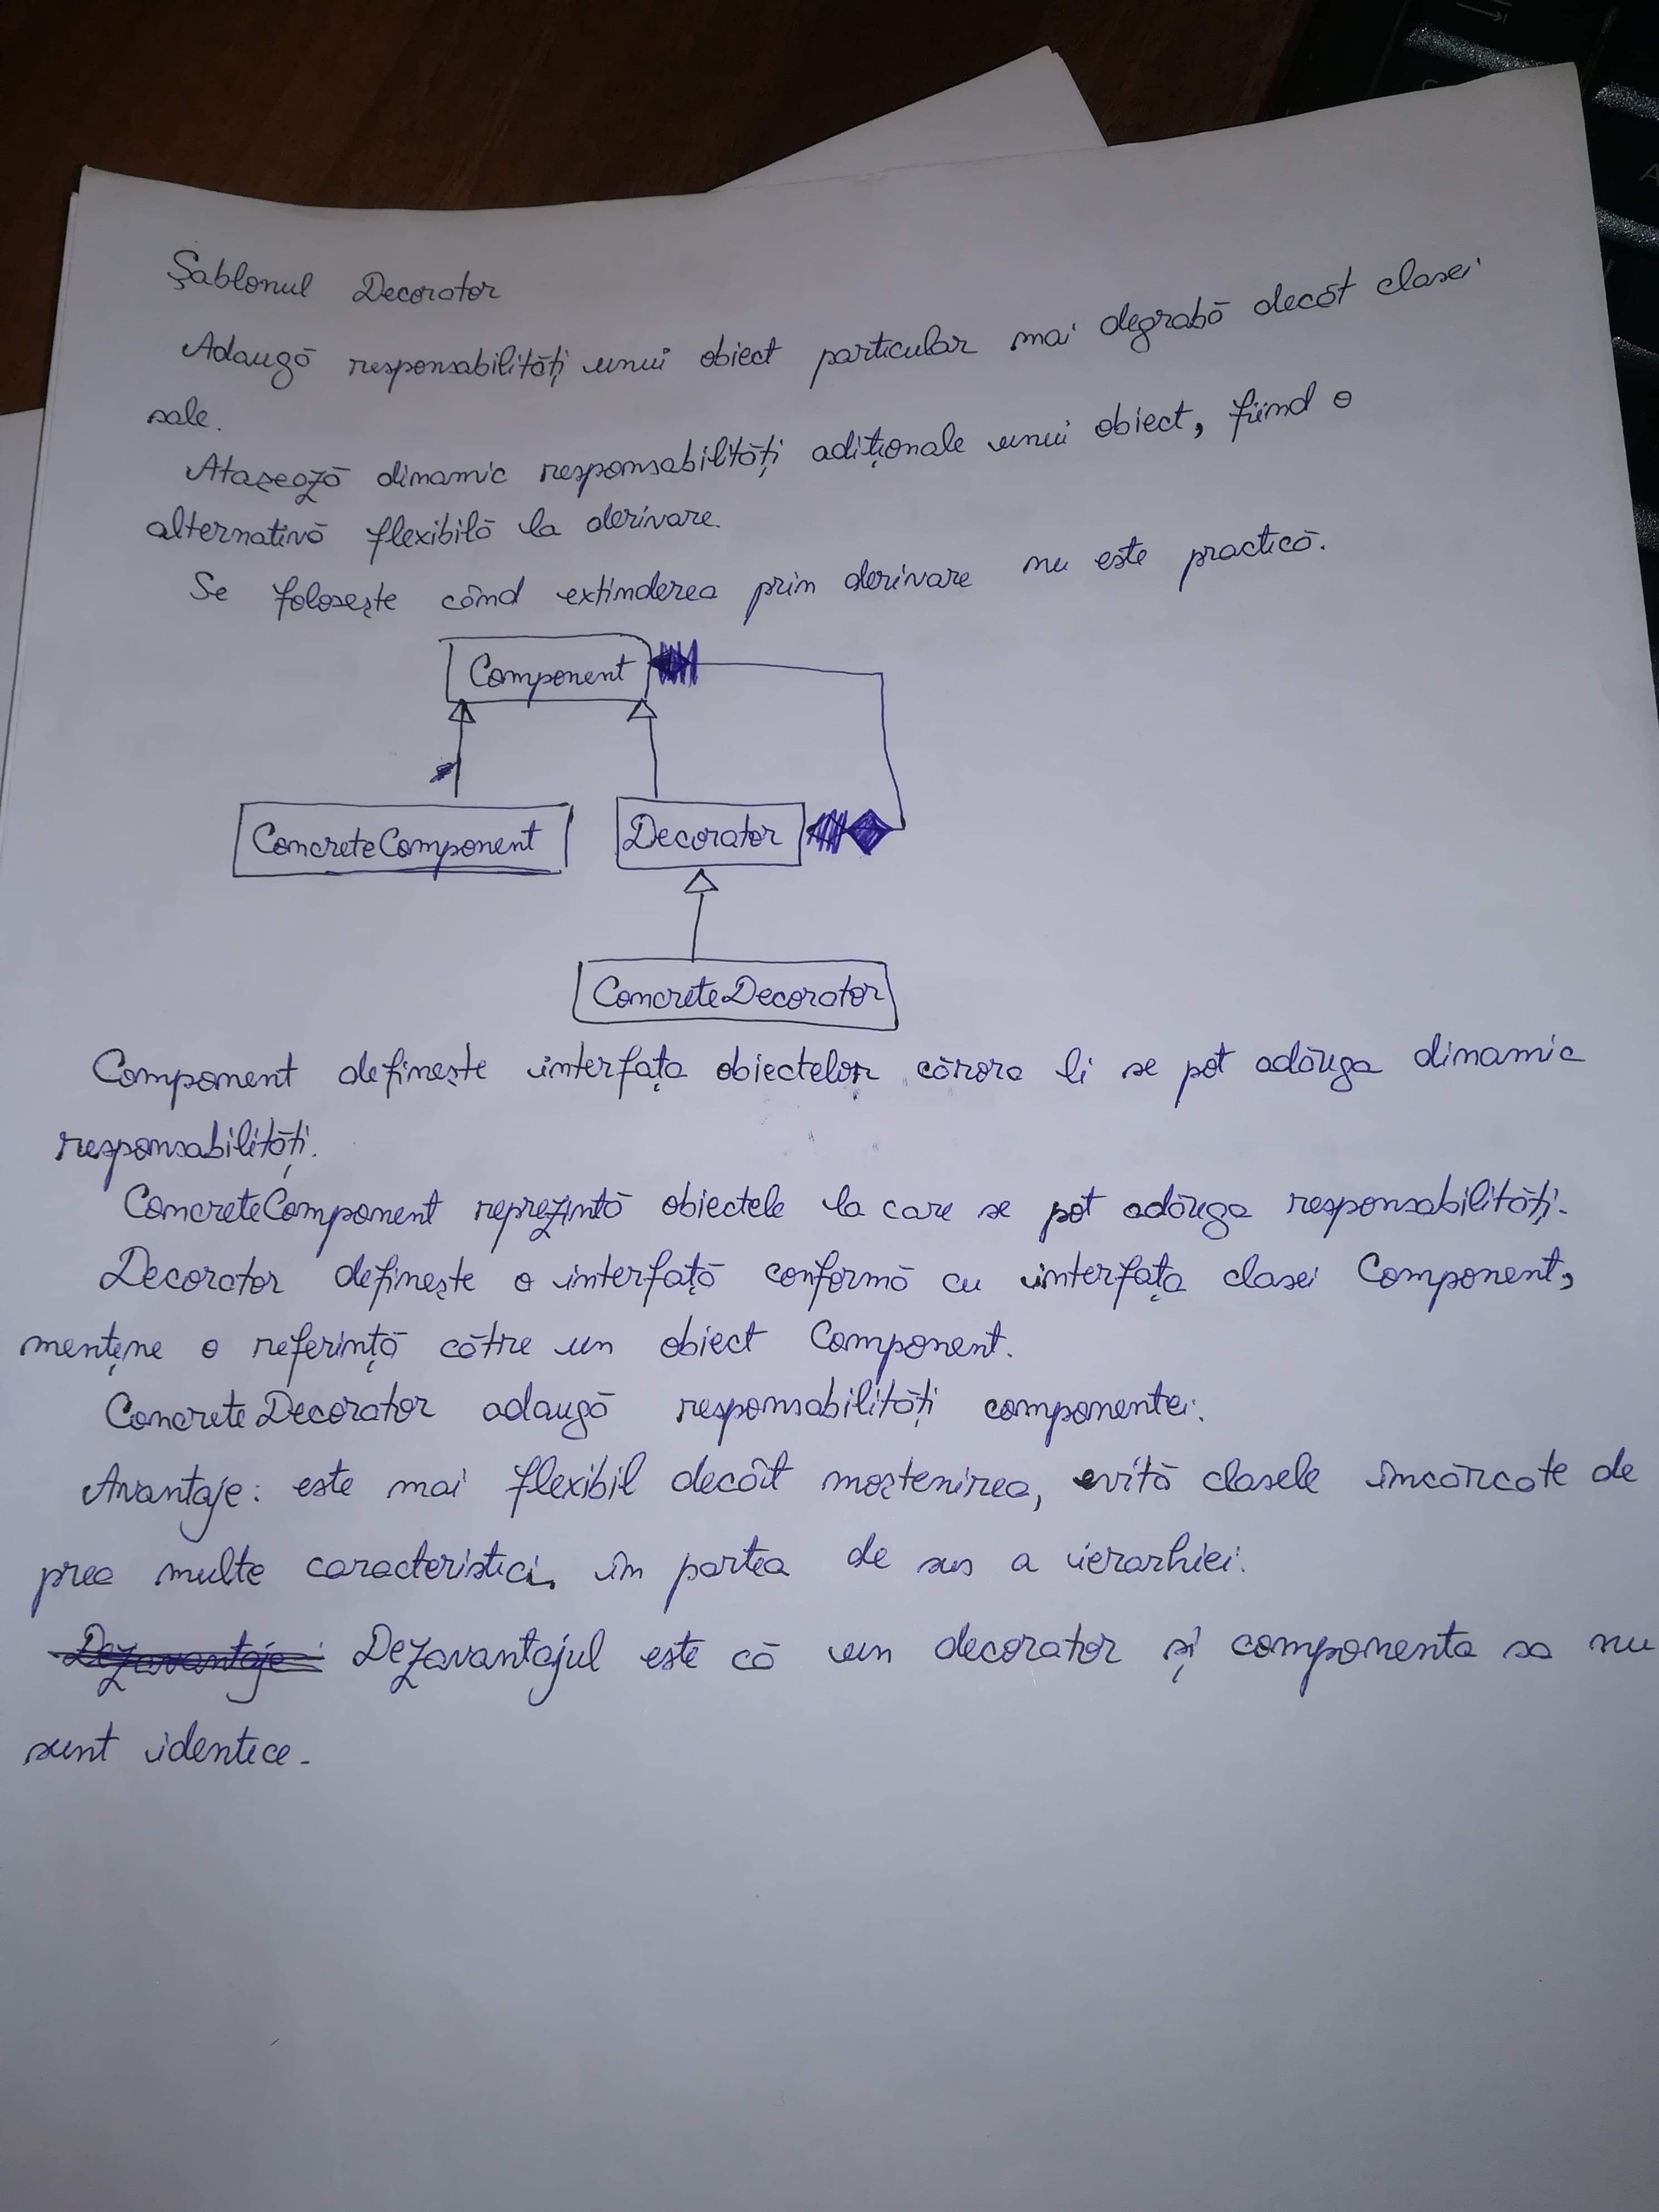 Șablonul Decorator
Adaugă responsabilități unui obiect particular mai degrabă decât clasei
sale.
Atașează dinamic responsabilități adiționale unui obiect, fiind o
alternativă flexibilă la derivare.
Se folosește când extinderea prin derivare nu este practică.
Component
ConcreteComponent
Decorator
ConcreteDecorator
Component definește interfața obiectelor cărora li se pot adăuga dinamic
responsabilități.
ConcreteComponent reprezintă obiectele la care se pot adăuga responsabilități.
Decorator definește o interfață conformă cu interfața clasei Component,
menține o referință către un obiect Component.
ConcreteDecorator adaugă responsabilități componentei.
Avantaje: este mai flexibil decât moștenirea, evită clasele încărcate de
prea multe caracteristici în partea de sus a ierarhiei.
Dezavantaje Dezavantajul este că un decorator și componenta sa nu
sunt identice.